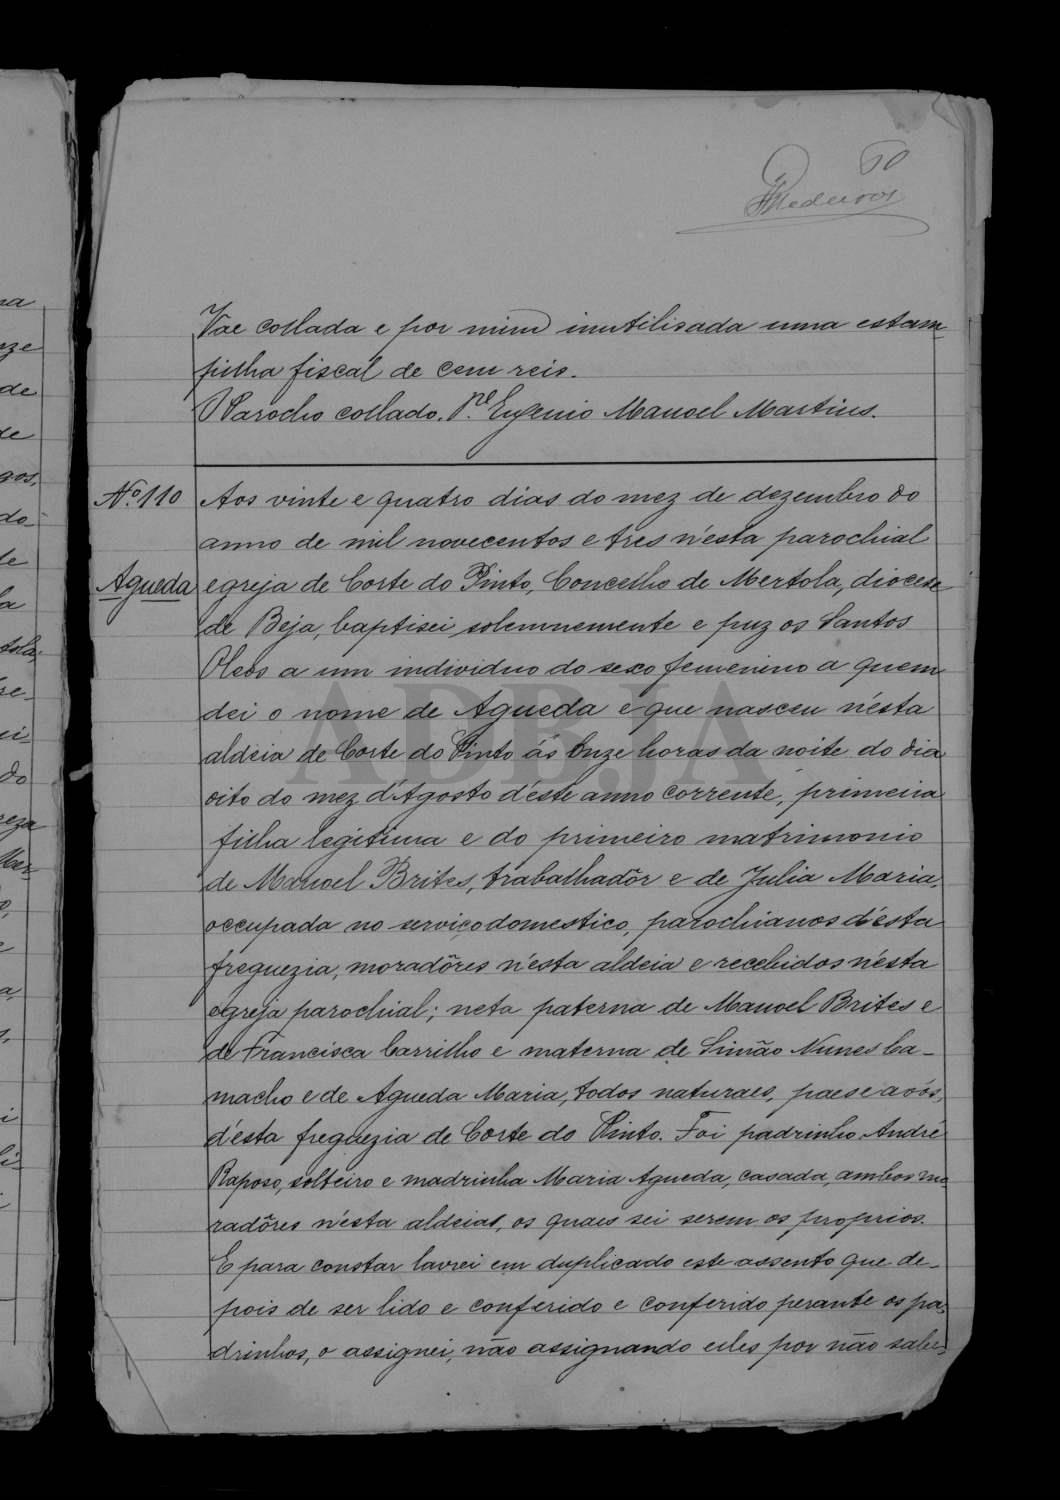 50
Medeiros
Vae collada e por mim inutilisada uma estam-
pilha fiscal de cem reis.
O Parocho collado. P.e Eugenio Manoel Martins.
Nº 110
Aos vinte e quatro dias do mez de dezembro do
anno de mil novecentos e tres n'esta parochial
Agueda
egreja de Corte do Pinto, Concelho de Mertola, diocese
de Beja, baptisei solemnemente e puz os Santos
Oleos a um individuo do sexo femenino a quem
dei o nome de Agueda e que nasceu n'esta
aldeia de Corte do Pinto ás Onze horas da noite do dia
oito do mez d'Agosto d'este anno corrente, primeira
filha legitima e do primeiro matrimonio
de Manoel Brites, trabalhadôr e de Julia Maria,
occupada no serviço domestico, parochianos d'esta
freguezia, moradôres n'esta aldeia e recebidos n'esta
egreja parochial; neta paterna de Manoel Brites e
de Francisca Carrilho e materna de Simão Nunes Ca-
macho e de Agueda Maria, todos naturaes, paes e avós,
d'esta freguezia de Corte do Pinto. Foi padrinho André
Raposo, solteiro e madrinha Maria Agueda, casada, ambos mo-
radôres n'esta aldeia, os quaes sei serem os proprios.
E para constar lavrei em duplicado este assento que de-
pois de ser lido e conferido e conferido perante os pa-
drinhos, o assignei, não assignando elles por não sabe-
ADBJA